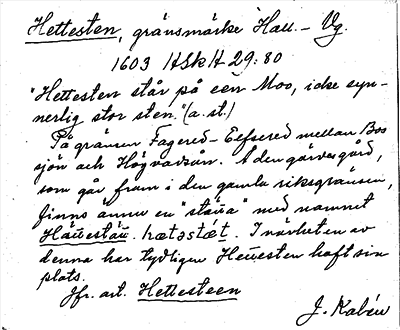 Hettesten, gränsmärke Hall. - Vg.
1603 HSkH 29:80
"Hettesten står på een Moo, icke syn-
nerlig stor sten." (a. st.)
På gränsen Fagered - Elfsered mellan Bos
sjön och Högvadsån. I den gärdesgård,
som går fram i den gamla riksgränsen,
finns ännu en "stätta" med namnet
Hättestätt. I närheten av
denna har tydligen Hettesten haft sin
plats.
Jfr. art. Hettesteen
J. Kalén